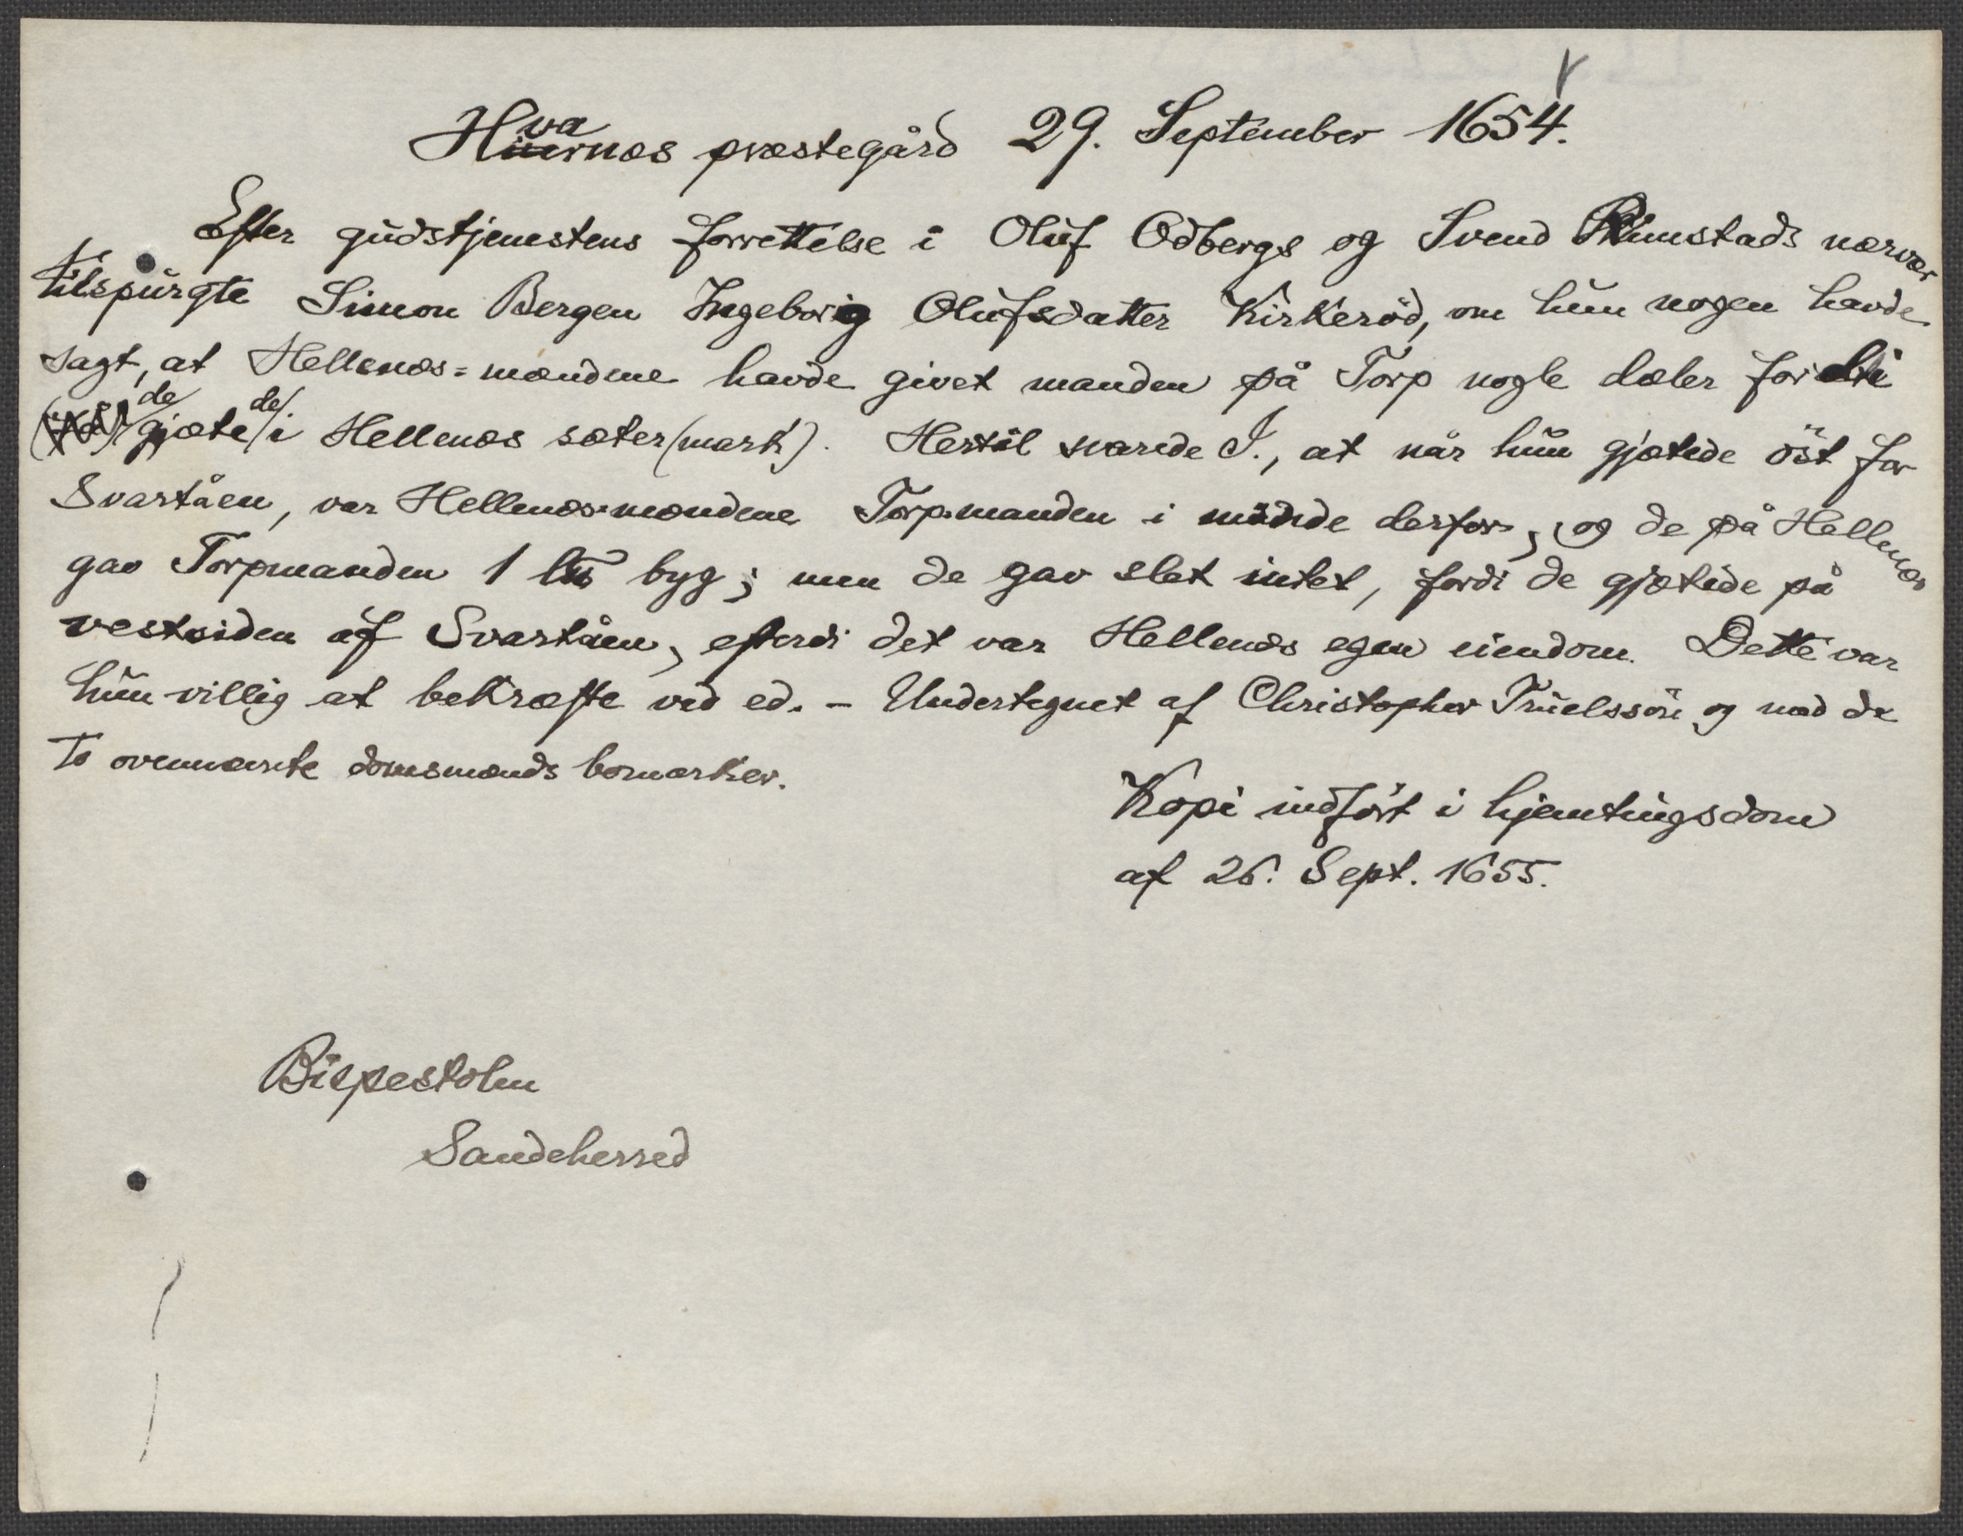 Hvarnæs præstegård 29. September 1654.
Efter gudstjenestens forrettelse i Oluf Odbergs og Svend Rimstads nærvær
tilspurgte Simon Bergen Ingeborg Olufsdatter Kirkeröd, om hun nogen havde
sagt, at Hellenæs-mændene havde givet manden på Torp nogle dæler fordi
de gjætede i Hellenæs sæter (mark). Hertil svarede I., at når hun gjætede öst for
Svartåen, var Hellenæs-mændene Torp-manden i minde derfor, og de på Hellenæs
gav Torpmanden 1 byg; men de gav slet intet, fordi de gjætede på
vestsiden af Svartåen, efterdi det var Hellenæs egen eiendom. Dette var
hun villig at bekræfte ved ed. - Undertegnet af Christopher Truelssön og med de
to ovennævnte domsmænds bomærker.
Kopi indfört i hjemtingsdom
af 26. Sept. 1655.
Bispestolen
Sandeherred